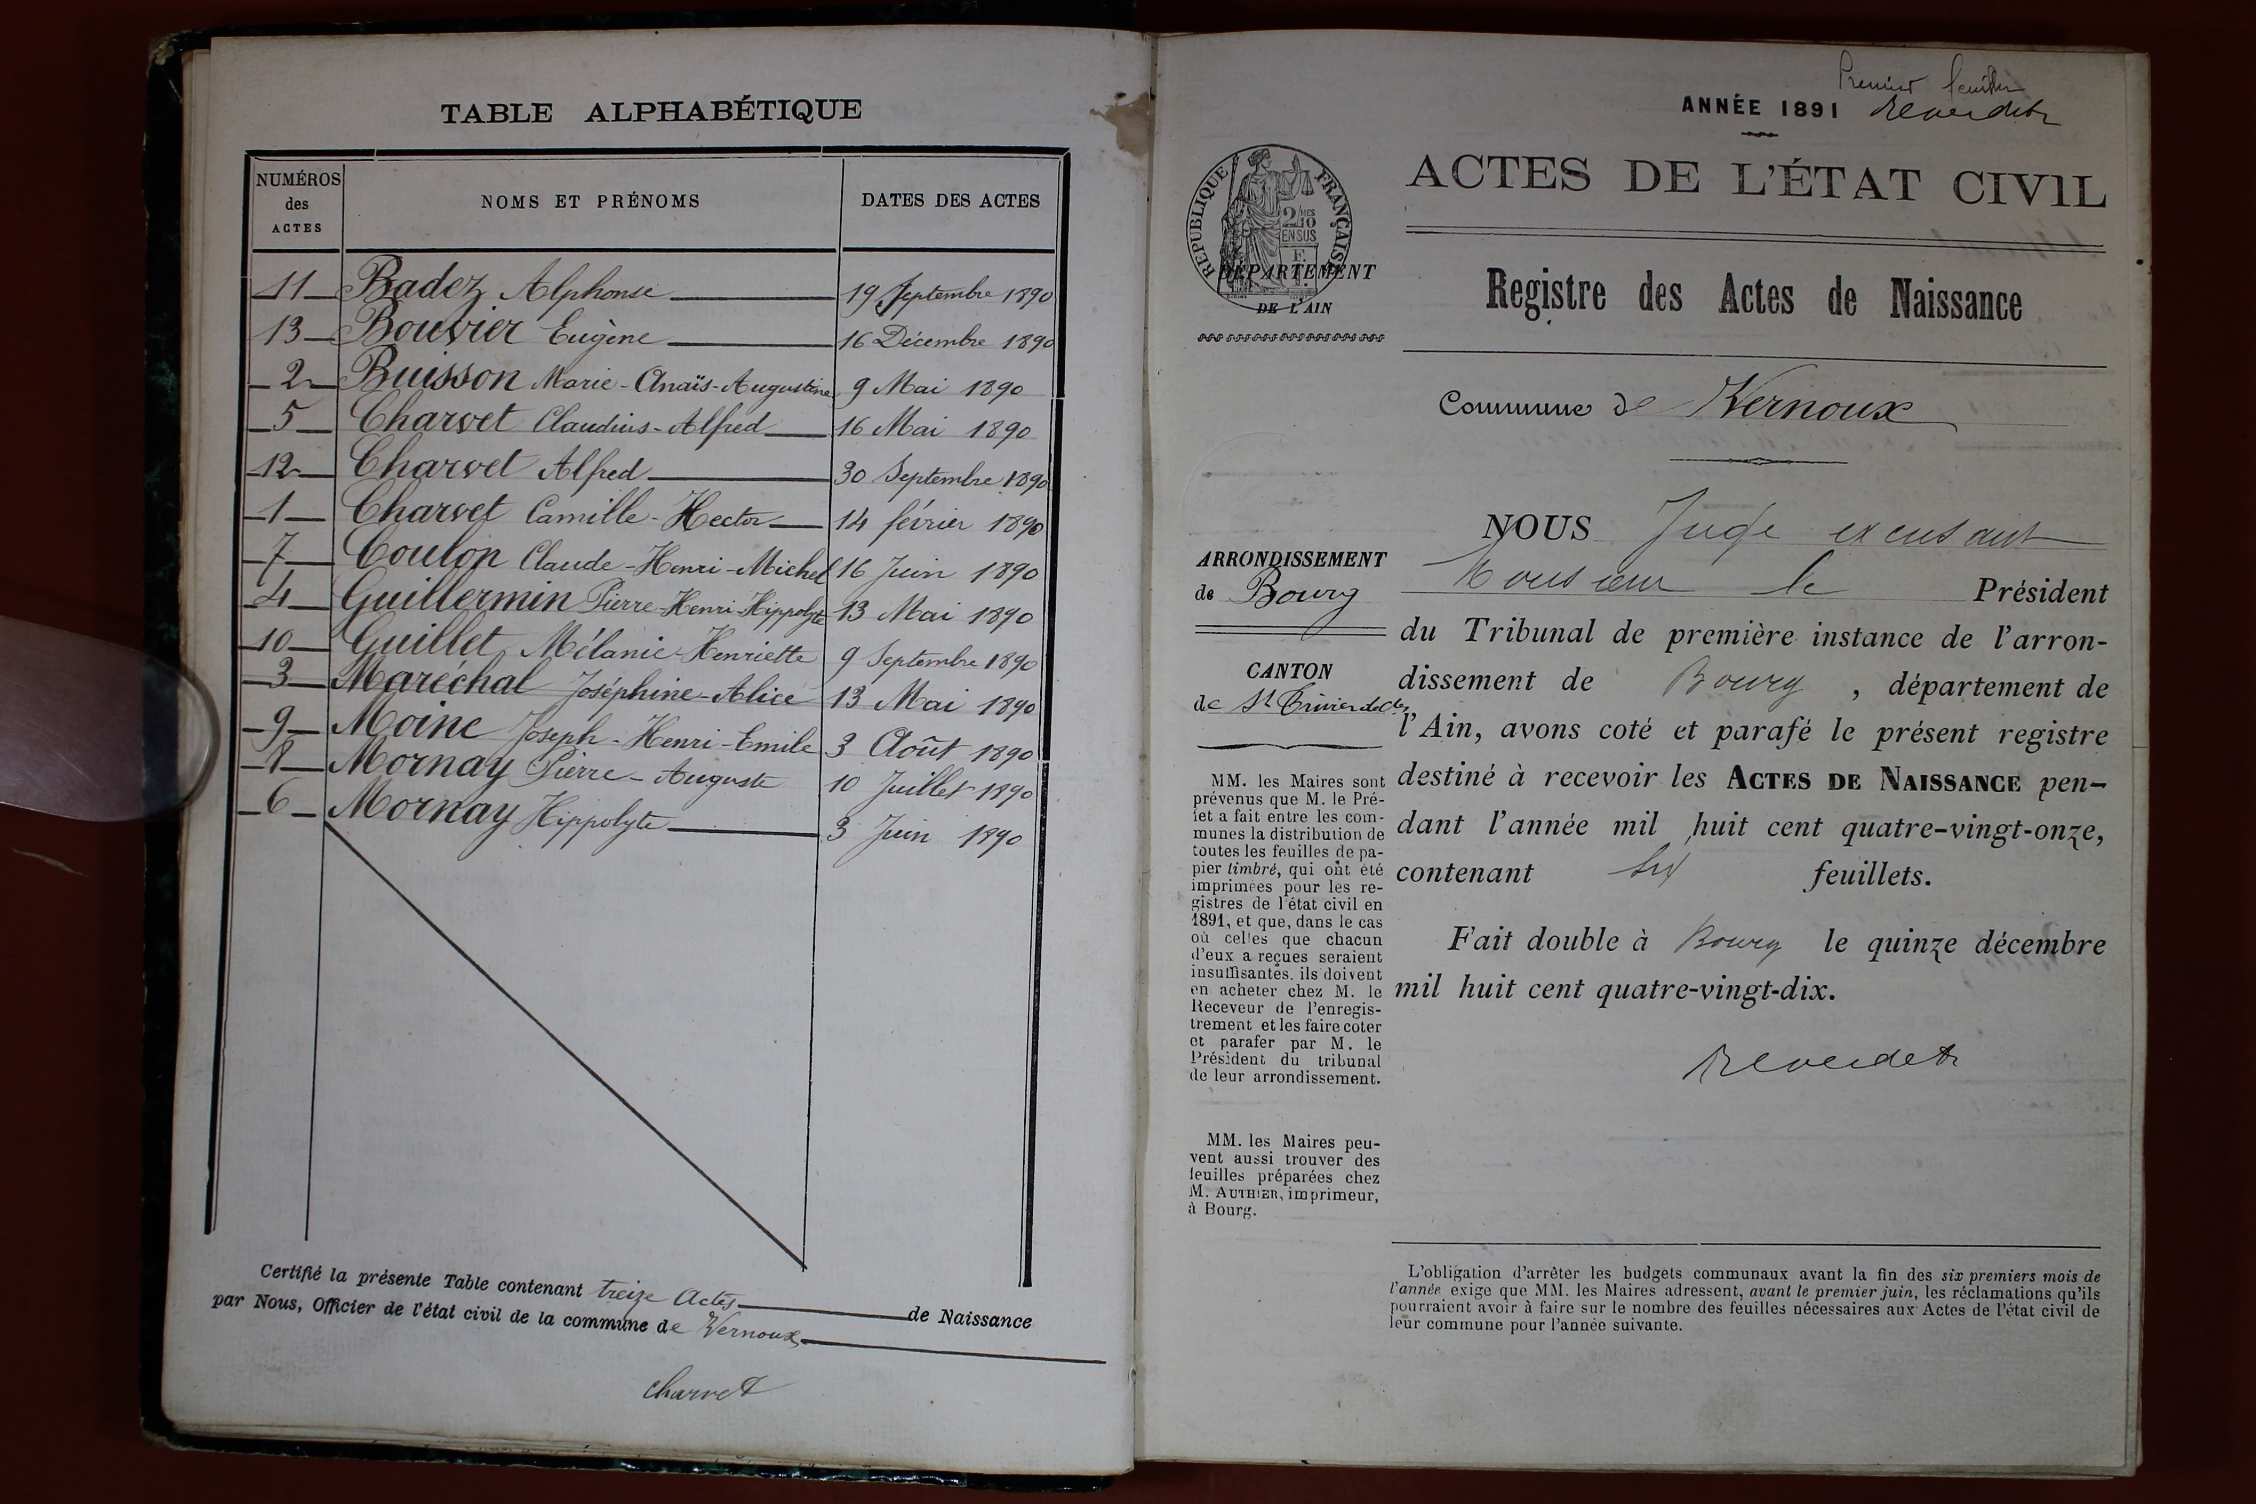 TABLE ALPHABÉTIQUE
NUMÉROS
des
ACTES
NOMS ET PRÉNOMS
DATES DES ACTES
11 Badez Alphonse 19 Septembre 1890
13 Bouvier Eugène 16 Décembre 1890
2 Buisson Marie-Anaïs-Augustine 9 Mai 1890
5 Charvet Claudius-Alfred 16 Mai 1890
12 Charvet Alfred 30 Septembre 1890
1 Charvet Camille-Hector 14 février 1890
7 Coulon Claude-Henri-Michel 16 Juin 1890
4 Guillermin Pierre-Henri-Hippolyte 13 Mai 1890
10 Guillet Mélanie-Henriette 9 Septembre 1890
3 Maréchal Joséphine-Alice 13 Mai 1890
9 Moine Joseph-Henri-Emile 3 Août 1890
8 Mornay Pierre-Auguste 10 Juillet 1890
6 Mornay Hippolyte 3 Juin 1890
Certifié la présente Table contenant treize Actes de Naissance
par Nous, Officier de l'état civil de la commune de Vernoux
Charvet
Premier feuillet
ANNÉE 1891 Reverdet
ACTES DE L'ÉTAT CIVIL
RÉPUBLIQUE FRANÇAISE
2/10 MES
EN SUS
DÉPARTEMENT
DE L'AIN
Registre des Actes de Naissance
Commune de Vernoux
ARRONDISSEMENT
de Bourg
CANTON
de St Trivier de Ctes
MM. les Maires sont
prévenus que M. le Pré-
fet a fait entre les com-
munes la distribution de
toutes les feuilles de pa-
pier timbré, qui ont été
imprimées pour les re-
gistres de l'état civil en
1891, et que, dans le cas
où celles que chacun
d'eux a reçues seraient
insuffisantes, ils doivent
en acheter chez M. le
Receveur de l'enregis-
trement et les faire coter
et parafer par M. le
Président du tribunal
de leur arrondissement.
MM. les Maires peu-
vent aussi trouver des
feuilles préparées chez
M. AUTHIER, imprimeur,
à Bourg.
NOUS Juge excusant
Monsieur le Président
du Tribunal de première instance de l'arron-
dissement de Bourg, département de
l'Ain, avons coté et parafé le présent registre
destiné à recevoir les ACTES DE NAISSANCE pen-
dant l'année mil huit cent quatre-vingt-onze,
contenant six feuillets.
Fait double à Bourg le quinze décembre
mil huit cent quatre-vingt-dix.
Reverdet
L'obligation d'arrêter les budgets communaux avant la fin des six premiers mois de
l'année exige que MM. les Maires adressent, avant le premier juin, les réclamations qu'ils
pourraient avoir à faire sur le nombre des feuilles nécessaires aux Actes de l'état civil de
leur commune pour l'année suivante.